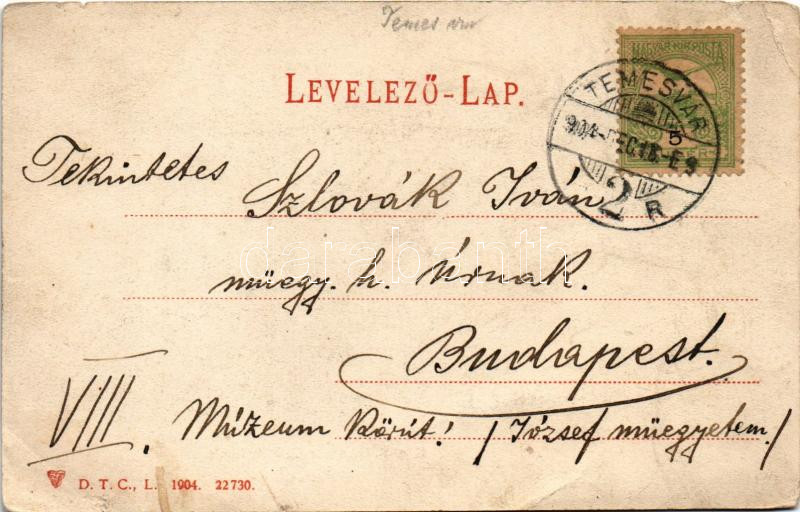 Temesvár
LEVELEZŐ-LAP.
MAGYAR KIR. POSTA
5
TEMESVÁR
904 DEC. 18. - E 9
2 R
Tekintetes
Szlovák Iván
műegy. h. Úrnak.
darabanth
Budapest.
VIII. Múzeum Körút! / József műegyetem /
D. T. C., L. 1904. 22730.